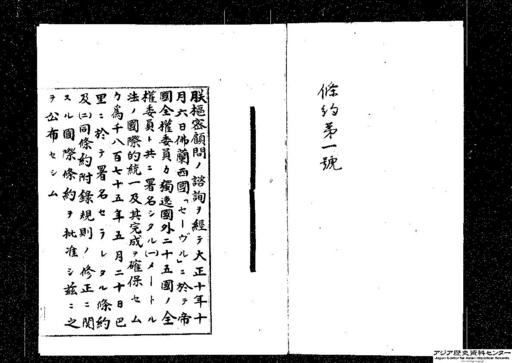 條約第一號
朕樞密顧問ノ諮詢ヲ經テ大正十年十
月六日佛蘭西國「セーヴル」ニ於テ帝
國全權委員カ獨逸國外二十五國ノ全
權委員ト共ニ署名シタル(一)メートル
法ノ國際的統一及其完成ヲ確保セム
カ為千八百七十五年五月二十日巴
里ニ於テ署名セラレタル條約
及(二)同條約附錄規則ノ修正ニ關
スル國際條約ヲ批准シ茲ニ之
ヲ公布セシム
アジア歴史資料センター
Japan Center for Asian Historical Records